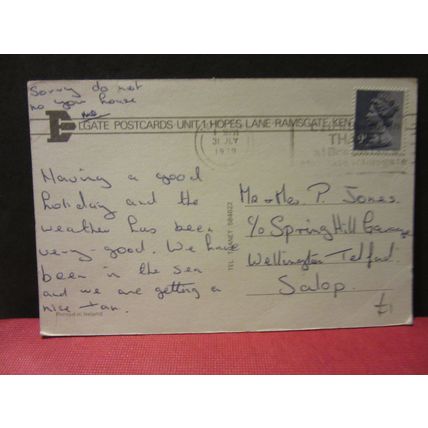 Sorry do not
no you house
no
ELGATE POSTCARDS UNIT 1 HOPES LANE RAMSGATE, KEN
31 JLY
1979
TH
Having a good
holiday and the
weather has been
very good. We have
been in the sea
and we are getting a
nice tan.
Printed in Ireland
TEL THANET 584022
Mr + Mrs. P. Jones.
c/o Spring Hill Garage
Wellington Telford.
Salop.